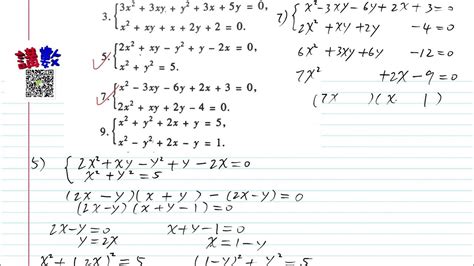 講數
3. { 3x² + 3xy + y² + 3x + 5y = 0,
x² + xy + x + 2y + 2 = 0.
5. { 2x² + xy - y² + y - 2x = 0,
x² + y² = 5.
7. { x² - 3xy - 6y + 2x + 3 = 0,
2x² + xy + 2y - 4 = 0.
9. { x² + y² + 2x + y = 5,
x² - y² + 2x - y = 1.
7) { x² - 3xy - 6y + 2x + 3 = 0
x² + xy + 2y - 4 = 0
6x² + 3xy + 6y - 12 = 0
7x² + 2x - 9 = 0
(7x )(x 1)
5) { 2x² + xy - y² + y - 2x = 0
x² + y² = 5
(2x - y)(x + y) - (2x - y) = 0
(2x - y)(x + y - 1) = 0
2x - y = 0 x + y - 1 = 0
y = 2x x = 1 - y
x² + (2x)² = 5 (1-y)² + y² = 5